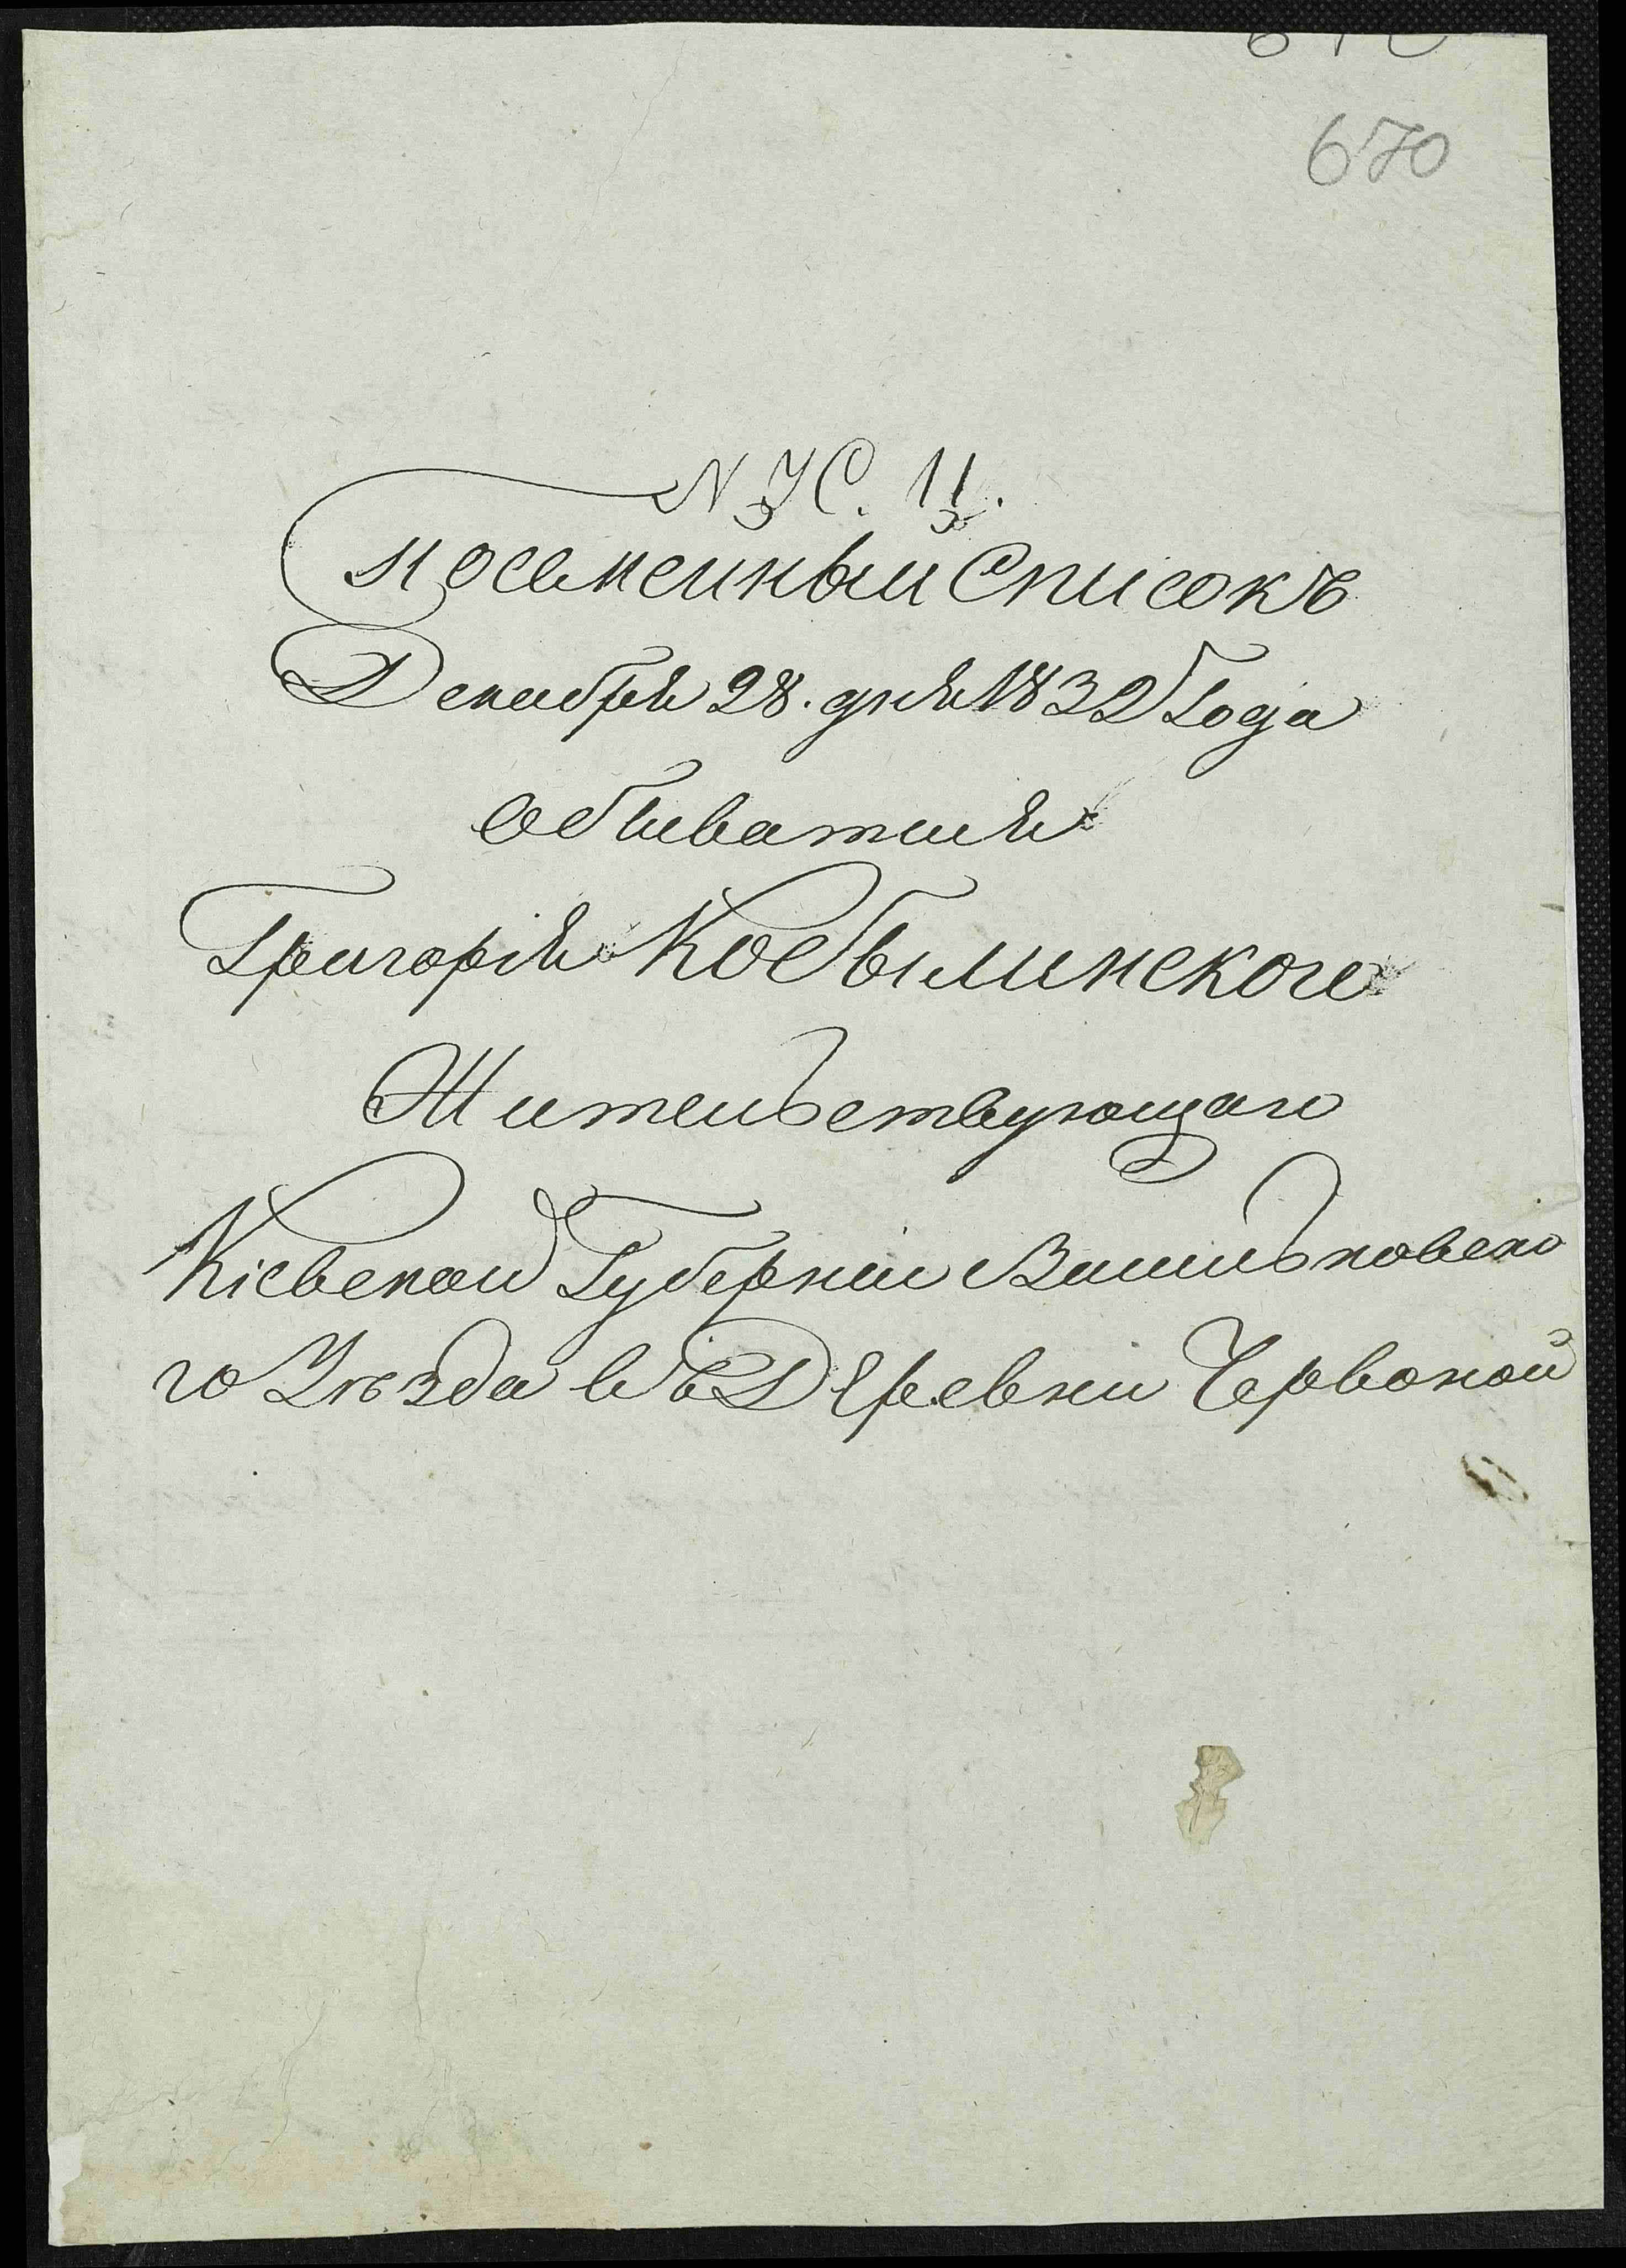 670
Посемейный Списокъ
Декабря 28. дня 1832 Года
Обывателя
Григорія Кобылинского
Жительствующаго
Кіевской Губерніи Васильковско
го Уѣзда въ Деревни Червоной